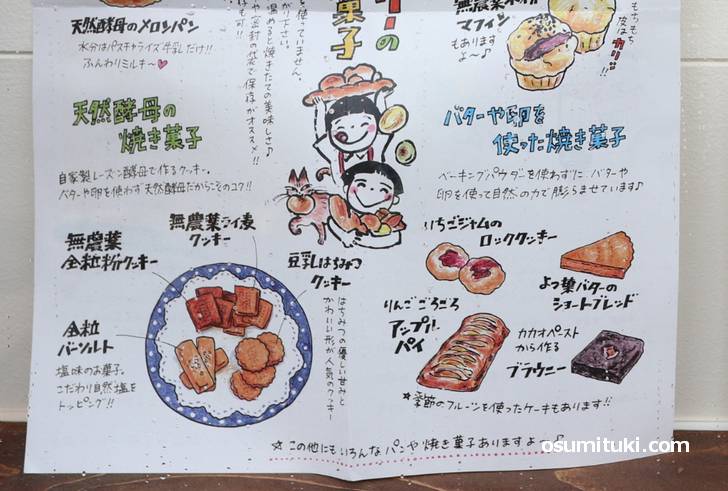 ーの
菓子
天然酵母のメロンパン
水分はパスチャライズ牛乳だけ!!
ふんわりミルキ〜♥
マフィン
もあります
よ〜♪
もちもち
皮はカリッ!!
を使っていません。
がり下さい。
温めると焼きたての美味しさ♪
や密封の袋で保存がオススメ!!
天然酵母の
焼き菓子
自家製レーズン酵母で作るクッキー。
バターや卵を使わず天然酵母だからこそのコク!!
バターや卵を
使った焼き菓子
ベーキングパウダーを使わずに、バターや
卵を使って自然の力で膨らませています♪
無農薬
全粒粉クッキー
無農薬ライ麦
クッキー
豆乳はちみつ
クッキー
はちみつの優しい甘みと
かわいい形が人気のクッキー
全粒
バーソルト
塩味のお菓子。
こだわり自然塩を
トッピング!!
いちごジャムの
ロッククッキー
よつ葉バターの
ショートブレッド
りんごごろごろ
アップル
パイ
カカオペースト
から作る
ブラウニー
☆季節のフルーツを使ったケーキもあります!!
☆この他にもいろんなパンや焼き菓子ありますよ〜♪
osumituki.com